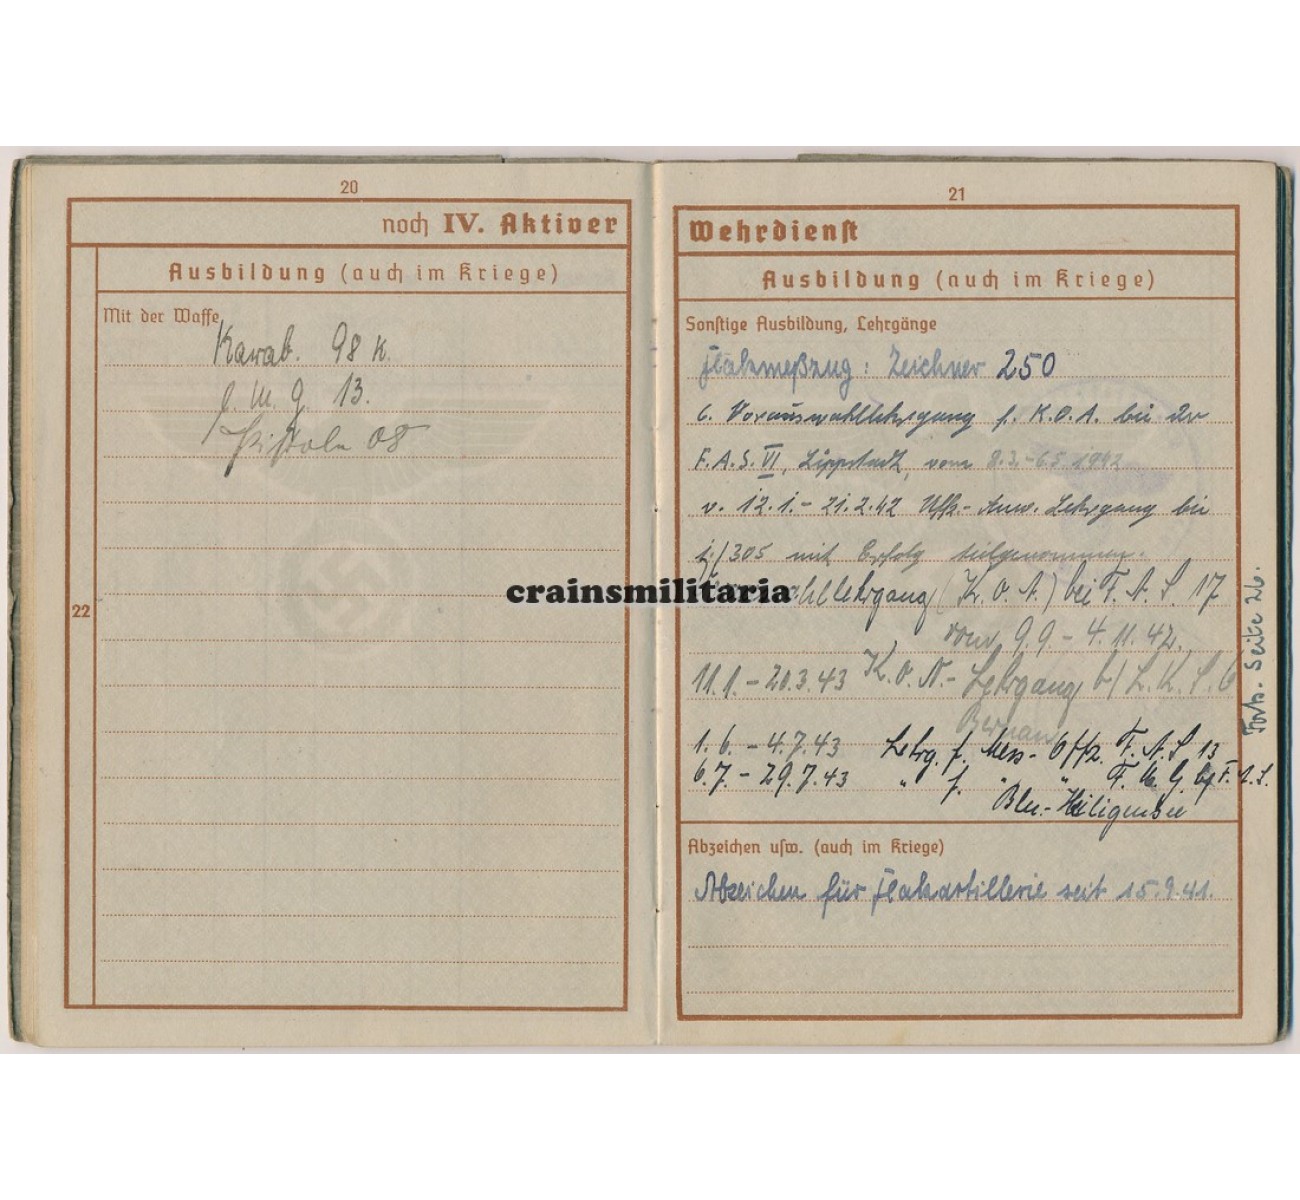 20
noch IV. Aktiver
Ausbildung (auch im Kriege)
Mit der Waffe
Karab. 98 K.
l. M. G. 13.
Pistole 08
22
21
Wehrdienst
Ausbildung (auch im Kriege)
Sonstige Ausbildung, Lehrgänge
Flakmeßzug: Zeichner 250
6. Vorauswahllehrgang f. K.O.A. bei der
F.A.S. VI, Lippstadt, vom 8.3.-6.5.1942
v. 12.1.- 21.2.42 Uffz.- Anw. Lehrgang bei
/305 mit Erfolg teilgenommen.
(K. O. A.) bei F. A. S. 17
vom 9.9. - 4.11.42.
11.1. - 20.3.43 K. O. A. - Lehrgang b/ L. K. S. 6
Bernau
1. 6. - 4.7.43 Lehrg. f. Mess- Offz. F. A. S 13
6.7. - 29.7.43 " f. " " F. M. G. F. A. S.
Bln.- Heiligensee
Forts. Seite 22.
Abzeichen usw. (auch im Kriege)
Abzeichen für Flakartillerie seit 15.9.41.
crainsmilitaria